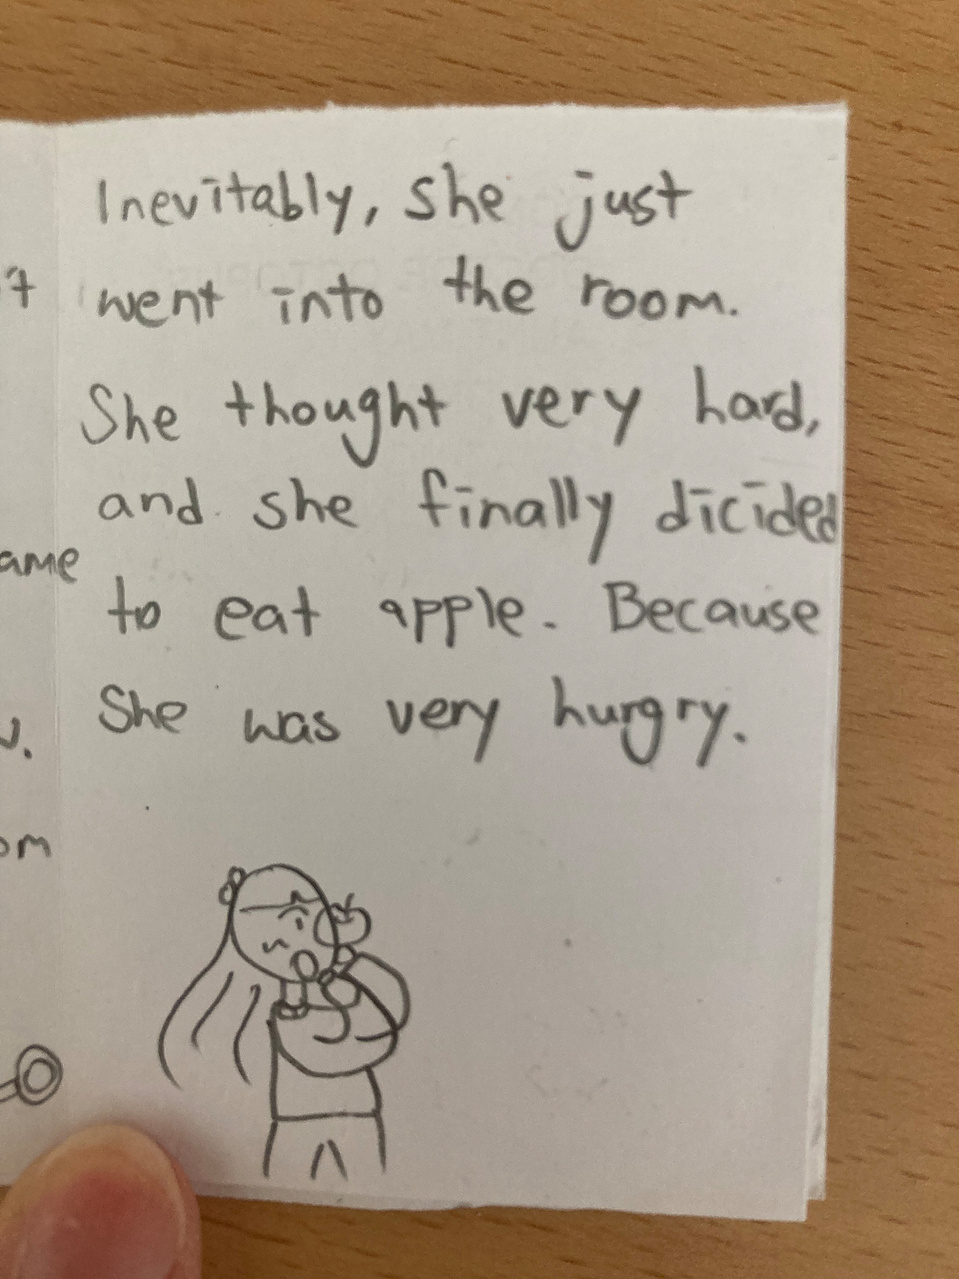 Inevitably, she just
went into the room.
She thought very hard,
and she finally dicided
to eat apple. Because
She was very hurgry.
't
ame
om